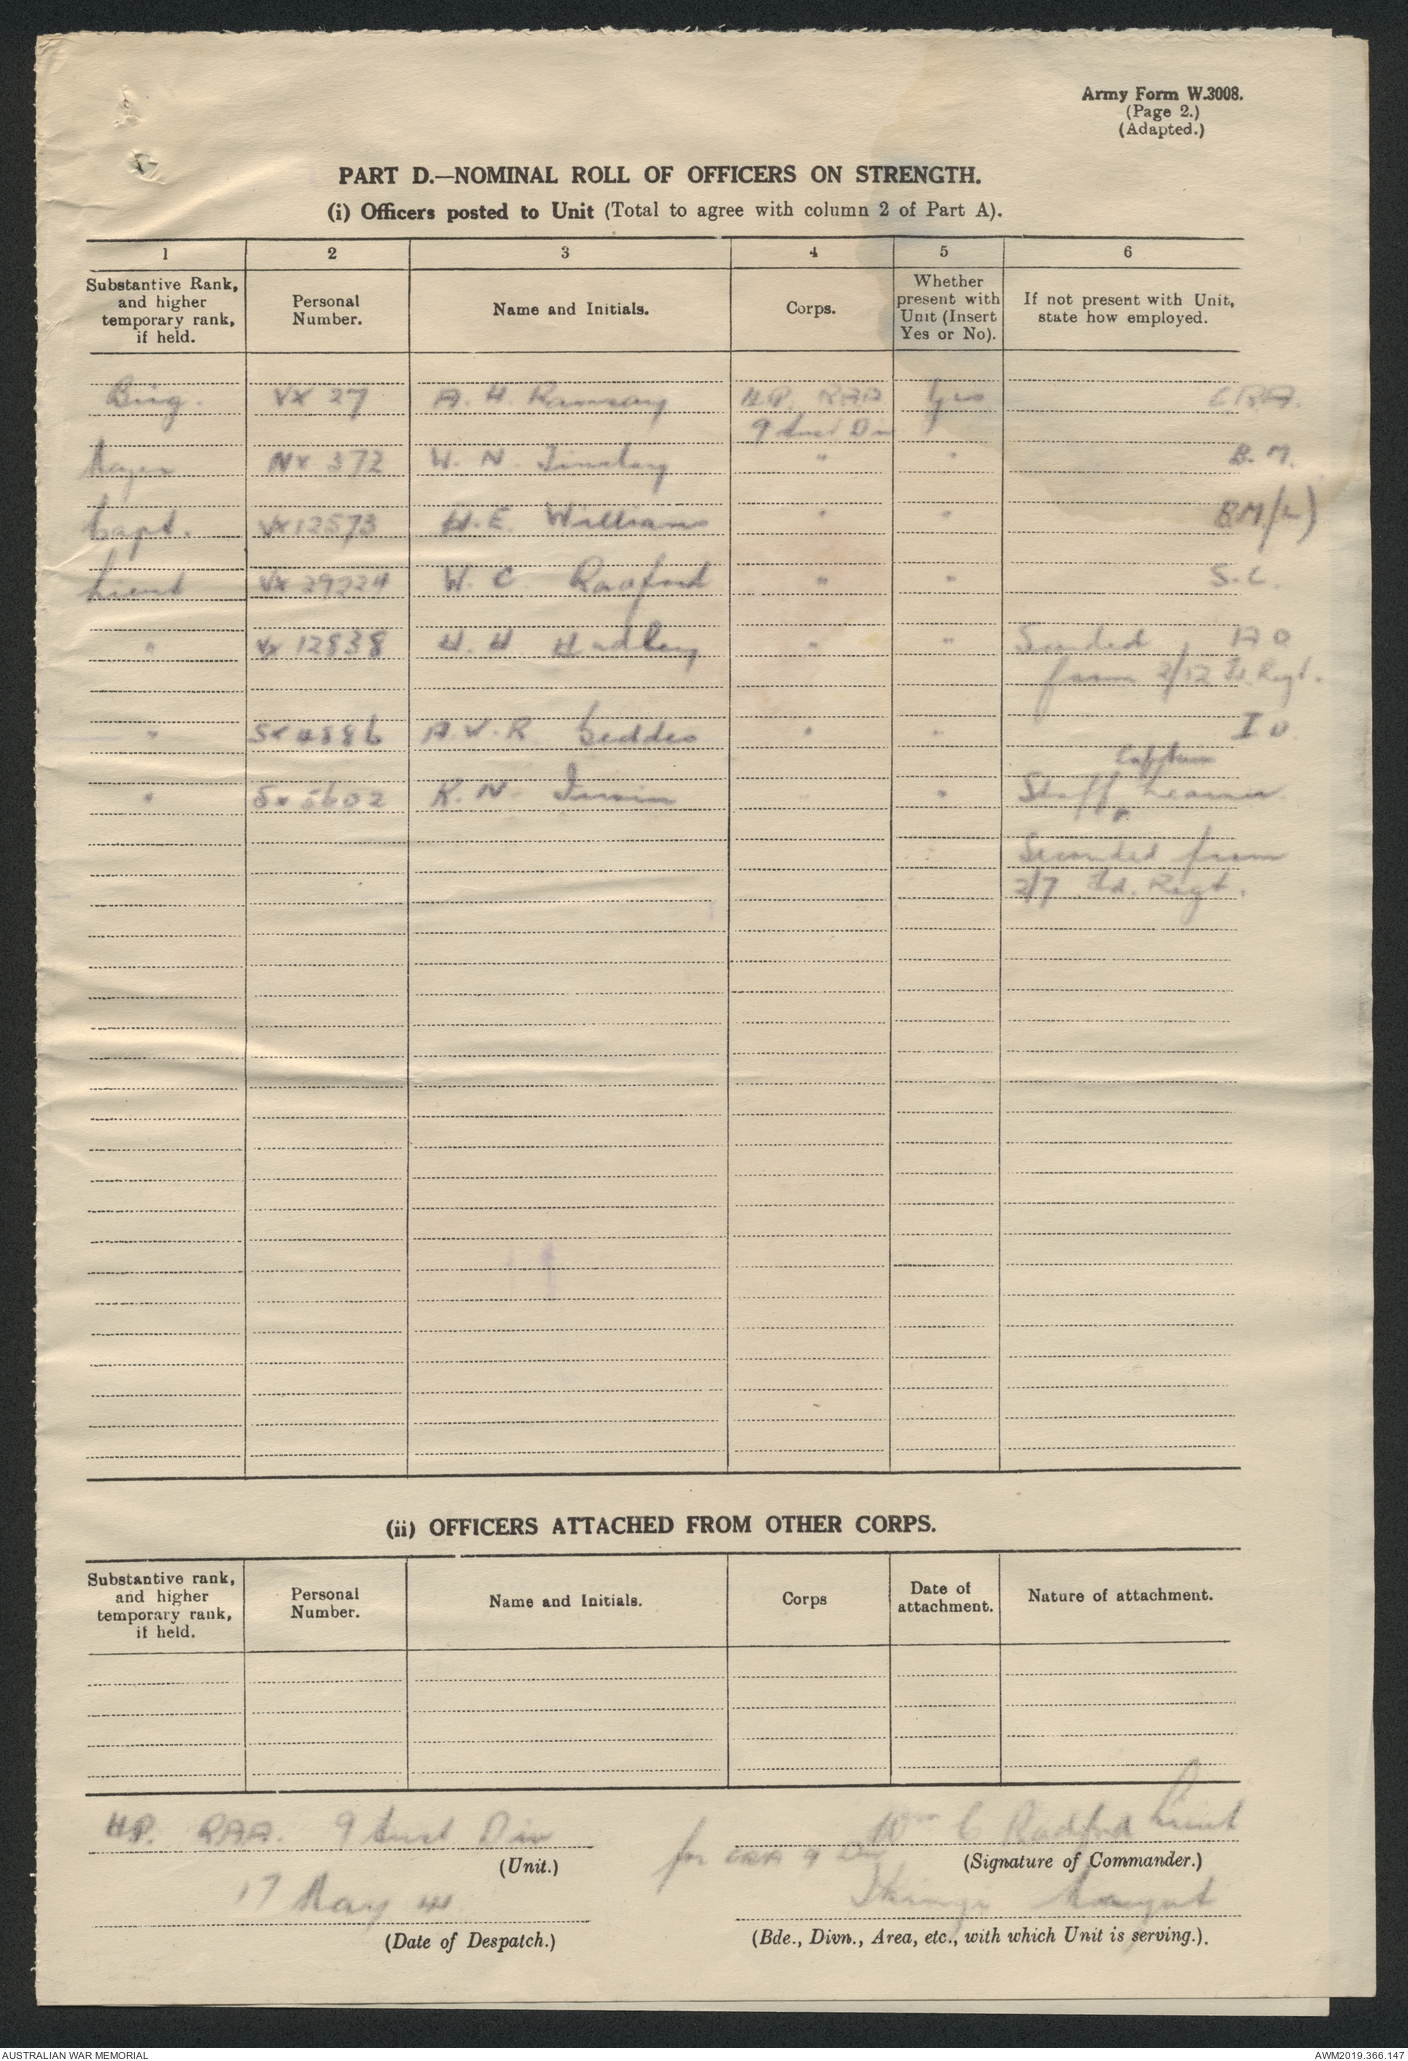 Army Form W.3008.
(Page 2.)
(Adapted.)
PART D.—NOMINAL ROLL OF OFFICERS ON STRENGTH.
(i) Officers posted to Unit (Total to agree with column 2 of Part A).
1 2 3 4 5 6
Substantive Rank, and higher temporary rank, if held.
Personal Number.
Name and Initials.
Corps.
Whether present with Unit (Insert Yes or No).
If not present with Unit, state how employed.
Brig. VX 27 A. H. Ramsay H.Q. RAA Yes CRA.
9 Aust Div
Major NX 372 W. N. Tinsley " " B.M.
Capt. VX12573 H.E. Williams " " BM(L)
Lieut VX 29224 W. C. Radford " " S.C.
" VX 12838 H. H. Hadley " " Seconded, A O
from 2/12 Fd. Regt.
" SX 4886 A.V.R. Geddes " " I O
Captain
" SX 5602 R. N. Irwin " Staff Learner
Seconded from
2/7 Fd. Regt.
(ii) OFFICERS ATTACHED FROM OTHER CORPS.
Substantive rank, and higher temporary rank, if held.
Personal Number.
Name and Initials.
Corps
Date of attachment.
Nature of attachment.
HQ. RAA. 9 Aust Div
(Unit.)
Wm C Radford Lieut
for CRA 9 Div
(Signature of Commander.)
17 May 41
(Date of Despatch.)
(Bde., Divn., Area, etc., with which Unit is serving.).
AUSTRALIAN WAR MEMORIAL
AWM2019.366.147